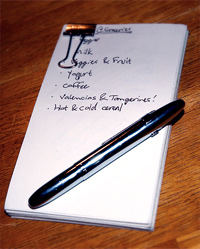 Groceries
milk
Veggies & Fruit
· Yogurt
· coffee
· Valencias & Tangerines!
· Hot & cold cereal